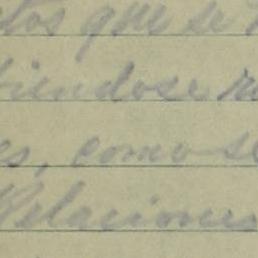 tos que se
iendose
es, como se
Relaciones